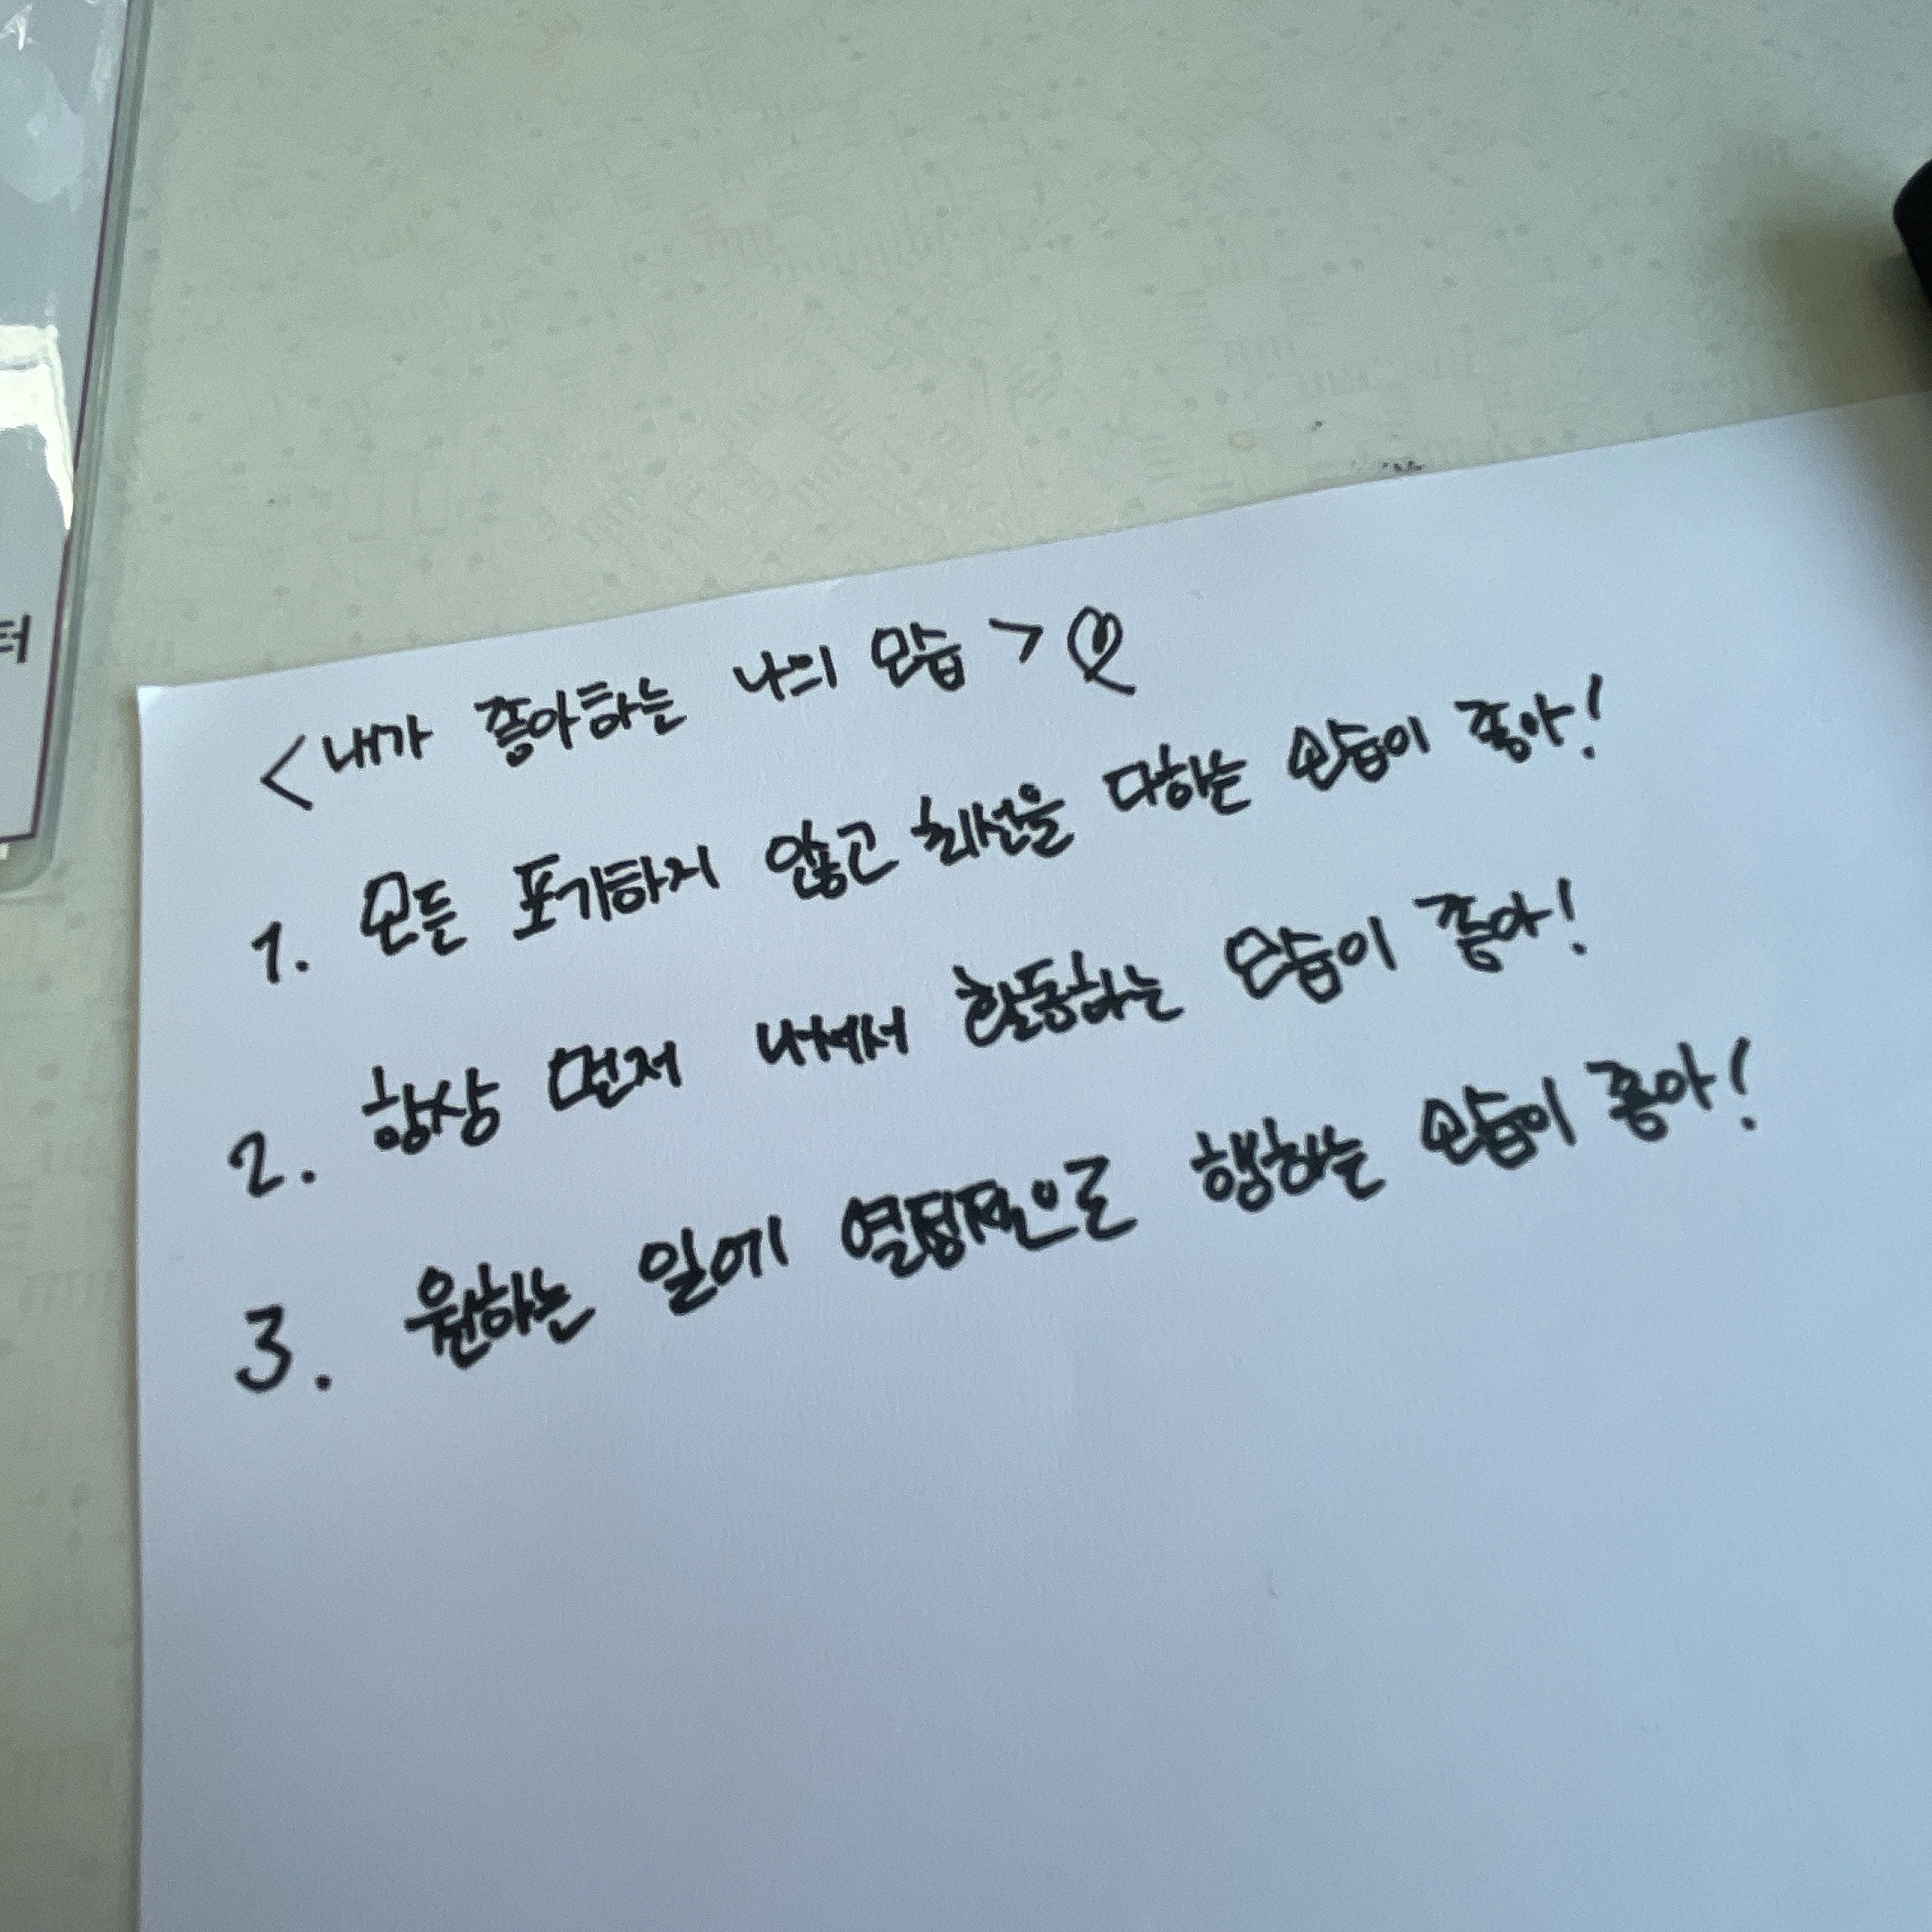 터
<내가 좋아하는 나의 모습>♡
1. 모든 포기하지 않고 최선을 다하는 모습이 좋아!
2. 항상 먼저 나서서 활동하는 모습이 좋아!
3. 원하는 일에 열정적으로 행하는 모습이 좋아!